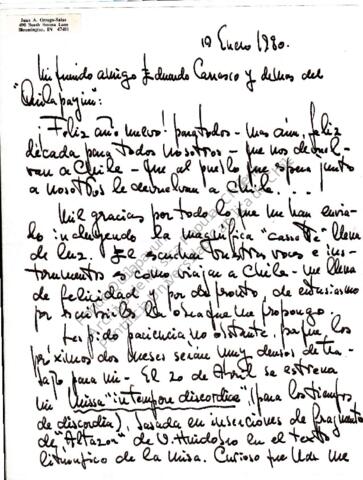 Juan A. Orrego-Salas
490 South Serena Lane
Bloomington, IN 47401
19 Enero 1980.
Mi querido amigo Eduardo Carrasco y demás del
"Quilapayún":
¡Feliz año nuevo! para todos - más aún, feliz
década para todos nosotros - que nos devuel-
van a Chile - que al pueblo que espera junto
a nosotros le devuelvan a Chile...
Mil gracias por todo lo que me han envia-
do incluyendo la magnífica "cassette" llena
de luz. El escuchar vuestras voces e ins-
trumentos es como viajar a Chile - me llena
de felicidad y por de pronto, de entusiasmo
por escribirles la obra que me propongo.
Les pido paciencia no obstante, porque los
próximos dos meses serán muy densos de tra-
bajo para mí - El 20 de Abril se estrena
mi Missa "in tempore discordiae", (para los tiempos
de discordia), basada en inserciones de fragmentos
de "Altazor" de V. Huidobro en el texto
litúrgico de la misa. Curioso que Uds. me